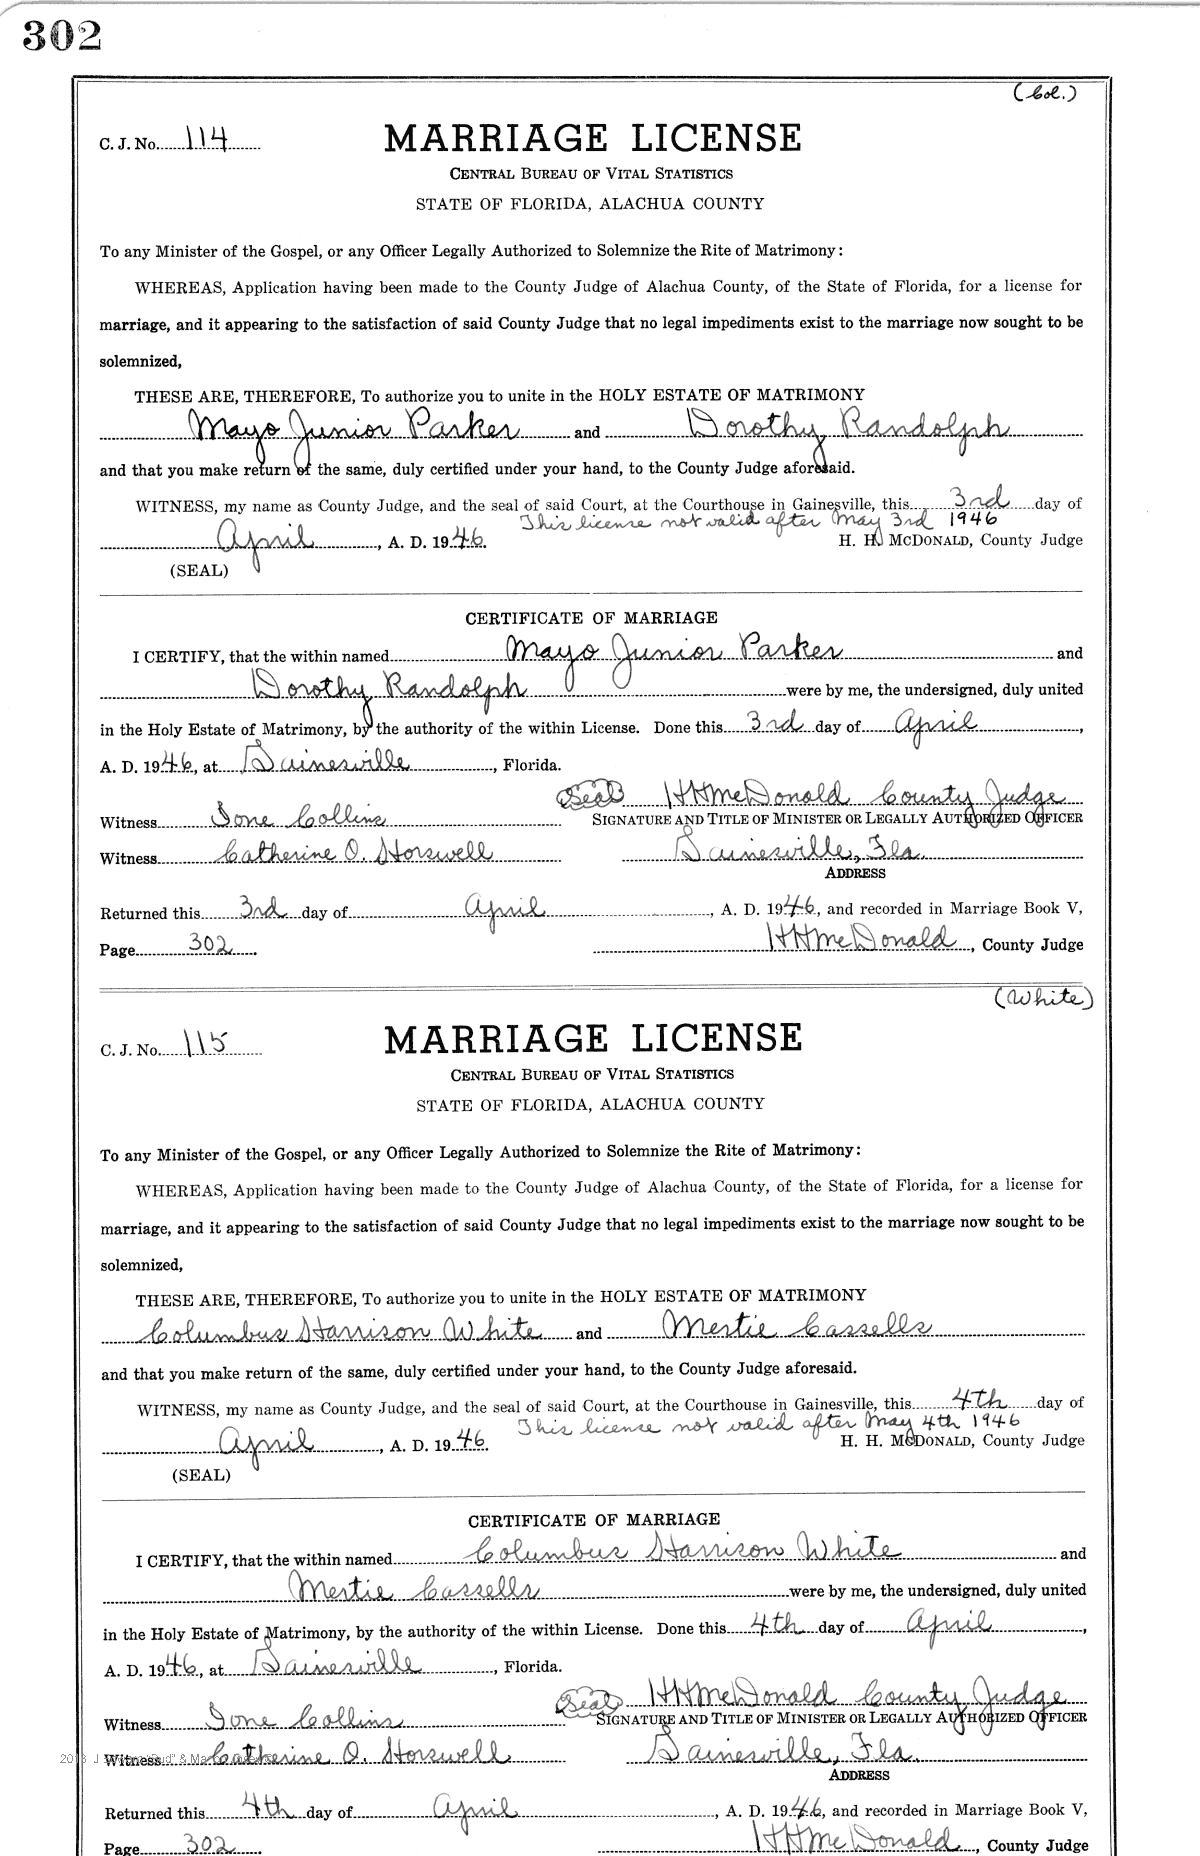 302
(Col.)
C. J. No. 114 MARRIAGE LICENSE
CENTRAL BUREAU OF VITAL STATISTICS
STATE OF FLORIDA, ALACHUA COUNTY
To any Minister of the Gospel, or any Officer Legally Authorized to Solemnize the Rite of Matrimony:
WHEREAS, Application having been made to the County Judge of Alachua County, of the State of Florida, for a license for
marriage, and it appearing to the satisfaction of said County Judge that no legal impediments exist to the marriage now sought to be
solemnized,
THESE ARE, THEREFORE, To authorize you to unite in the HOLY ESTATE OF MATRIMONY
Mayo Junior Parker and Dorothy Randolph
and that you make return of the same, duly certified under your hand, to the County Judge aforesaid.
WITNESS, my name as County Judge, and the seal of said Court, at the Courthouse in Gainesville, this 3rd day of
This license not valid after May 3rd 1946
April, A. D. 1946. H. H. McDONALD, County Judge
(SEAL)
CERTIFICATE OF MARRIAGE
I CERTIFY, that the within named Mayo Junior Parker and
Dorothy Randolph were by me, the undersigned, duly united
in the Holy Estate of Matrimony, by the authority of the within License. Done this 3rd day of April,
A. D. 1946, at Gainesville, Florida.
Seal HHMcDonald County Judge
Witness Ione Collins SIGNATURE AND TITLE OF MINISTER OR LEGALLY AUTHORIZED OFFICER
Witness Catherine O. Horswell Gainesville, Fla.
ADDRESS
Returned this 3rd day of April, A. D. 1946, and recorded in Marriage Book V,
Page 302. HHMcDonald, County Judge
(White)
C. J. No. 115 MARRIAGE LICENSE
CENTRAL BUREAU OF VITAL STATISTICS
STATE OF FLORIDA, ALACHUA COUNTY
To any Minister of the Gospel, or any Officer Legally Authorized to Solemnize the Rite of Matrimony:
WHEREAS, Application having been made to the County Judge of Alachua County, of the State of Florida, for a license for
marriage, and it appearing to the satisfaction of said County Judge that no legal impediments exist to the marriage now sought to be
solemnized,
THESE ARE, THEREFORE, To authorize you to unite in the HOLY ESTATE OF MATRIMONY
Columbus Harrison White and Mertie Cassells
and that you make return of the same, duly certified under your hand, to the County Judge aforesaid.
WITNESS, my name as County Judge, and the seal of said Court, at the Courthouse in Gainesville, this 4th day of
This license not valid after May 4th 1946
April, A. D. 1946. H. H. McDONALD, County Judge
(SEAL)
CERTIFICATE OF MARRIAGE
I CERTIFY, that the within named Columbus Harrison White and
Mertie Cassells were by me, the undersigned, duly united
in the Holy Estate of Matrimony, by the authority of the within License. Done this 4th day of April,
A. D. 1946, at Gainesville, Florida.
Seal HHMcDonald County Judge
Witness Ione Collins SIGNATURE AND TITLE OF MINISTER OR LEGALLY AUTHORIZED OFFICER
Witness Catherine O. Horswell Gainesville, Fla.
ADDRESS
Returned this 4th day of April, A. D. 1946, and recorded in Marriage Book V,
Page 302. HHMcDonald, County Judge